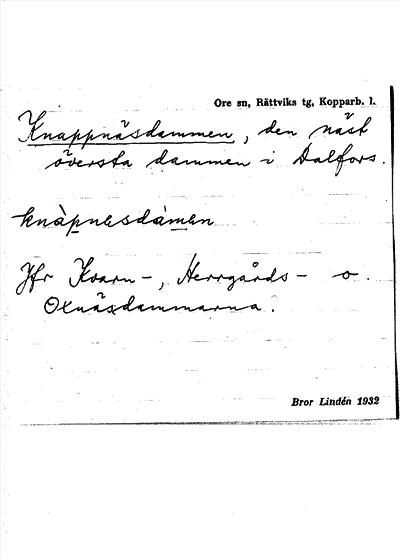 Ore sn, Rättviks tg, Kopparb. l.
Knappnäsdammen, den näst
översta dammen i Dalfors.
knàpnesdàmen
Jfr Kvarn-, Herrgårds- o.
Oxnäsdammarna.
Bror Lindén 1932